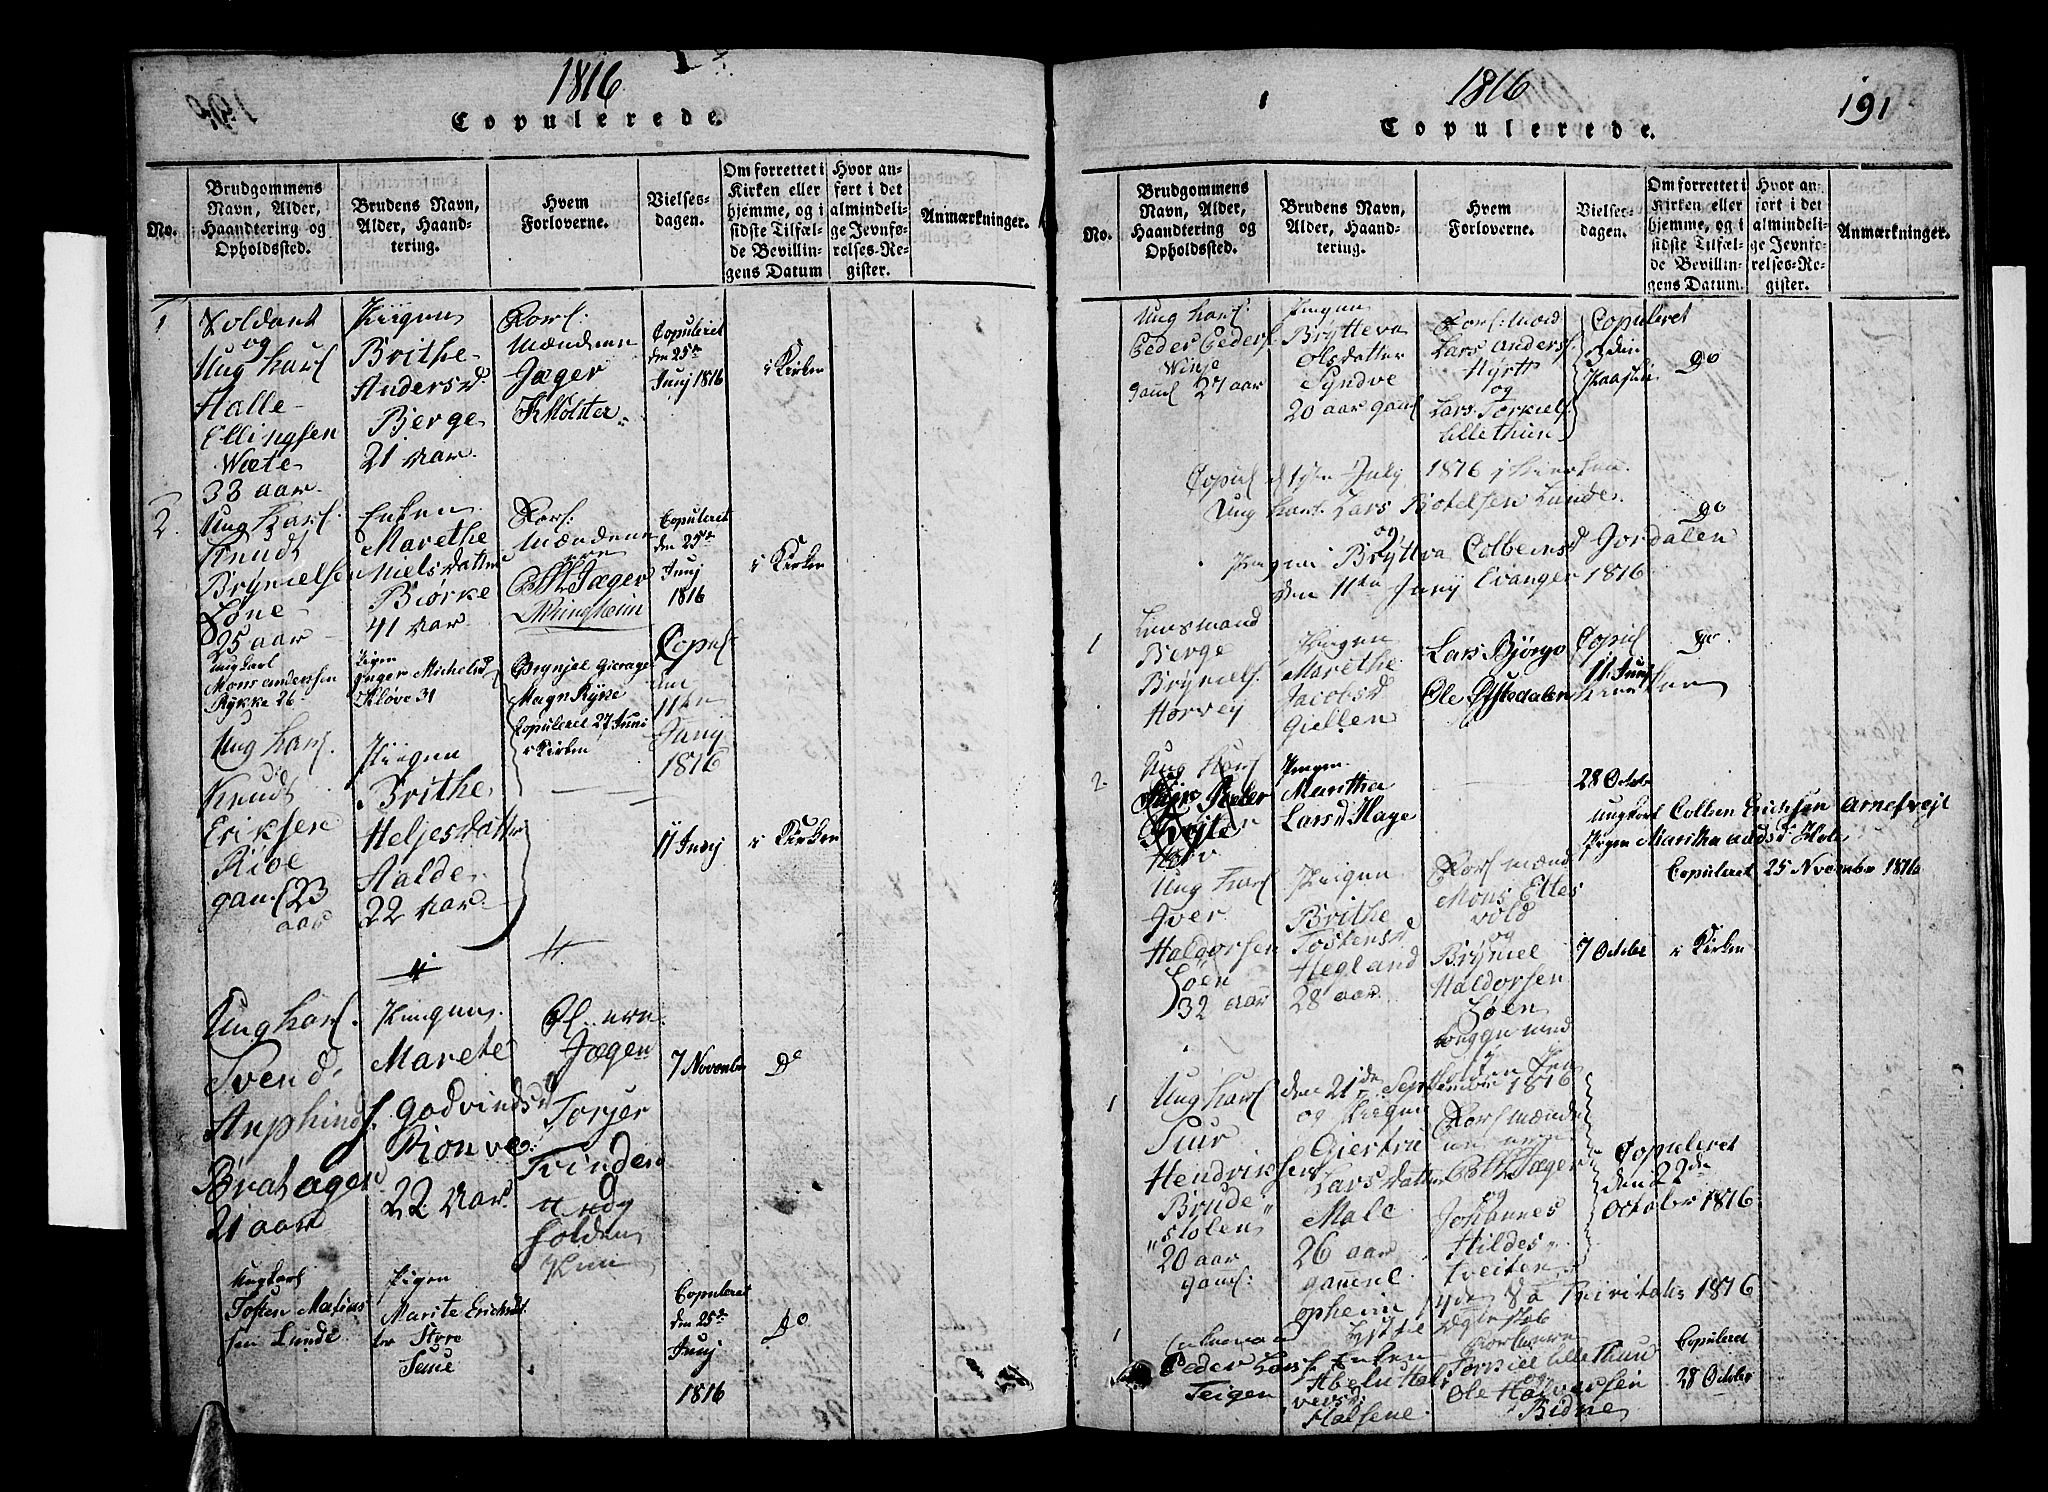 1816
Copulerede.
No.
Brudgommens
Navn, Alder,
Haandtering og
Opholdssted.
Brudens Navn,
Alder, Haand-
tering.
Hvem
Forloverne.
Vielses-
dagen.
Om forrettet i
Kirken eller
hjemme, og i
sidste Tilfæl-
de Bevillin-
gens Datum
Hvor an-
ført i det
almindeli-
ge Jevnfø-
relses-Re-
gister.
Anmærkninger.
1
Soldart
og
Ung karl
Halle
Ellingsen
Wæte
33 aar
Pigen
Brithe
Andersd
Berge
21 Aar
Forl:
Mændene
Jæger
K Mølster
Copuleret
den 25de
Junj 1816
i Kirken
2.
Ung karl.
Knudt
Brynielsen
Løne
25 aar
Enken
Marethe
Nielsdatter
Biørke
41 Aar
Forl:
Mændene
Jæger
Ringheim
Copuleret
den 25de
Junj
1816
i Kirken
Ungkarl
Mons anderssen
Rykke 26
Pigen
Inger Michelsd
Kløve 31
Brynjel Gierager
Magn Rykke
Copuleret 27 Juni
i Kirken
Copul
11te
Junj
1816
Ung karl.
Knudt
Eriksen
Rioe
gaml 23
aar
Pigen
Brithe
Heljesdatter
Halde
22 Aar
11 Junj
i Kirken
Ung karl.
Svend
Anphinds.
Brahagen
21 aar
Pigen
Marete
Godvindsd
Rionve
22 Aar
Jægen
Torjer
Trinden
Andg
Solden
7 November
Do
Ungkarl
Tosten Matias
sen Lunde
Pigen
Marite Ericksdat
ter Styre
Seue
Copuleret
den 25de
Junj
1816
Do
1816
191
Copulerede.
No.
Brudgommens
Navn, Alder,
Haandtering og
Opholdssted.
Brudens Navn,
Alder, Haand-
tering.
Hvem
Forloverne.
Vielses-
dagen.
Om forrettet i
Kirken eller
hjemme, og i
sidste Tilfæl-
de Bevillin-
gens Datum.
Hvor an-
ført i det
almindeli-
ge Jevnfø-
relses-Re-
gister.
Anmærkninger.
Ung karl:
Peder Peders.
Winje
gaml 27 aar
Pigen
Brytteva
Olsdatter
Syndve
20 aar gaml
Forl: Mænd
Lars Anders.
Hyrt
og
Lars Torkiels.
Lillethun
Copuleret
3die
Paaske
do
Copul d 1ste July 1816 j Kierken.
Ung karl. Lars Botelsen Lunde.
og
do
Pigen Bryttva Colbeinsd Jordalen
den 11te Junij Evanger 1816
1
Lensmand
Berge
Bryniels.
Horvey
Pigen
Marethe
Jacobsd
Giellen
Lars Bjørgo
Ole Øfstedalen
Copul
11 Junj
do
2.
Ung karl
Pigen
Maritha
Larsd Hage
28 Octobr
Ungkarl Colben Erichsen Arnesvejt
Pigen Maritha Hole
Copuleret 25 November 1816
Ung karl
Jver
Haldorsen
Søen
32 aar
Pigen
Brithe
Tostensd
Hegland
28 aar
Forl mænd
Mons Elles
vold
og
Bryniel
Haldorsen
Søen
7 Octobr
i Kirken
1
Ung karl den 21de September 1816
Siur
Hendriksen
Brude
"stolen"
20 aar
gaml:
og Pigen
Giertru
Larsdatter
Male
26 aar
gammel
Forl mænde
Jæger
og
Johannes
Hildes
tveiten
Copuleret
den 22de
October 1816
opheim 14de Sø Trinitatis 1816
1
Enkemand
Peder Lars.
Teigen
Enken
Abelu Hal
versd:
Halsene.
Torkiel Lillethun
og
Ole Halvorsen
Bidne
Copuleret
28 October